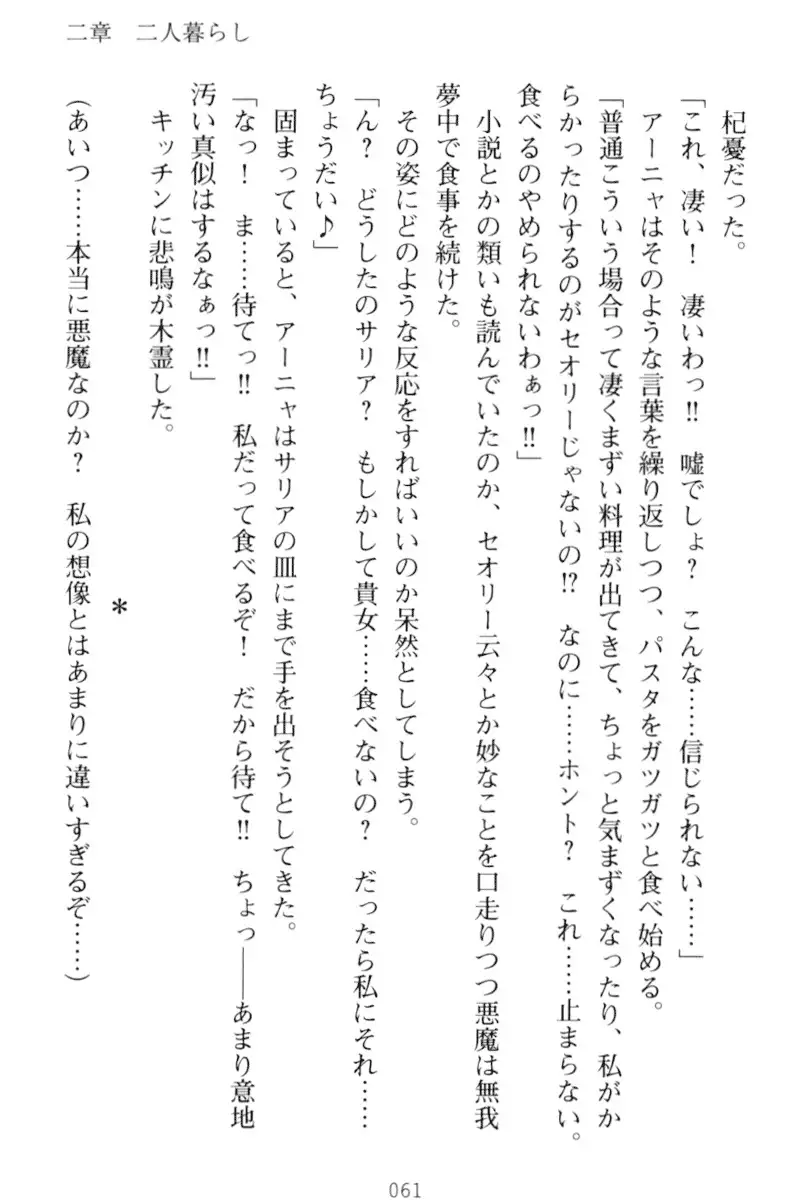 二章　二人暮らし
杞憂だった。
「これ、凄い！　凄いわっ!!　嘘でしょ？　こんな……信じられない……」
アーニャはそのような言葉を繰り返しつつ、パスタをガツガツと食べ始める。
「普通こういう場合って凄くまずい料理が出てきて、ちょっと気まずくなったり、私がか
らかったりするのがセオリーじゃないの!?　なのに……ホント？　これ……止まらない。
食べるのやめられないわぁっ!!」
小説とかの類いも読んでいたのか、セオリー云々とか妙なことを口走りつつ悪魔は無我
夢中で食事を続けた。
その姿にどのような反応をすればいいのか呆然としてしまう。
「ん？　どうしたのサリア？　もしかして貴女……食べないの？　だったら私にそれ……
ちょうだい♪」
固まっていると、アーニャはサリアの皿にまで手を出そうとしてきた。
「なっ！　ま……待てっ!!　私だって食べるぞ！　だから待て!!　ちょっ――あまり意地
汚い真似はするなぁっ!!」
キッチンに悲鳴が木霊した。
＊
（あいつ……本当に悪魔なのか？　私の想像とはあまりに違いすぎるぞ……）
061